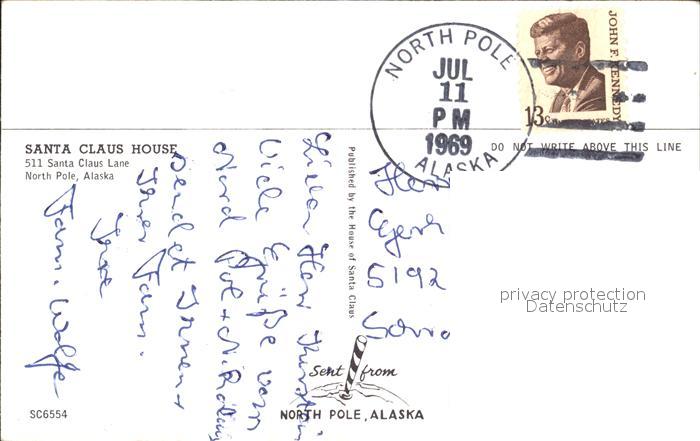 NORTH POLE
JUL
11
PM
1969
ALASKA
JOHN F. KENNEDY
13c
SANTA CLAUS HOUSE
511 Santa Claus Lane
North Pole, Alaska
DO NOT WRITE ABOVE THIS LINE
Lieber Herr
Viele Grüße vom
Nord Pol +
sendet Ihnen +
Ihrer Fam.
Ihre
Fam. Wolfe
Published by the House of Santa Claus
Herr
5192
privacy protection
Datenschutz
Sent from
NORTH POLE, ALASKA
SC6554